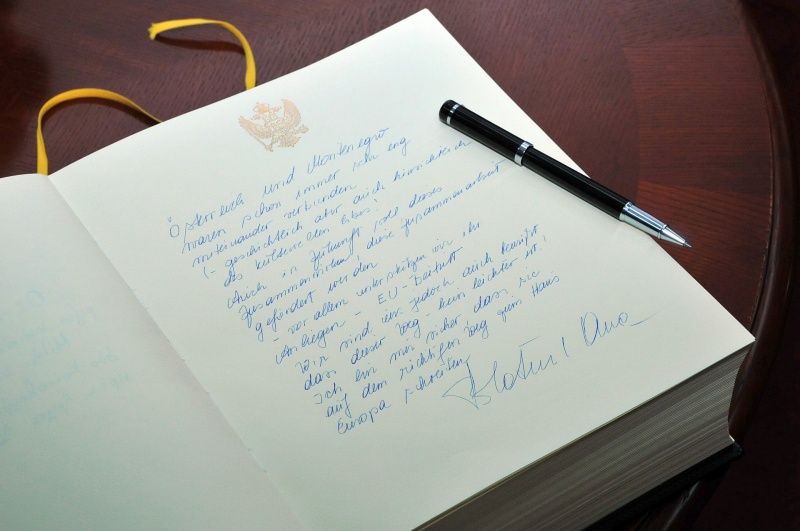 Österreich und Montenegro
waren schon immer sehr eng
miteinander verbunden
(- geschichtlich aber auch hinsichtlich
des kulturellen Erbes!
Auch in Zukunft soll dieses
Zusammenwirken / diese Zusammenarbeit
gefördert werden
- vor allem unterstützen wir ihr
Anliegen - EU-Beitritt
Wir sind uns jedoch auch bewußt
dass dieser Weg - kein leichter ist!
Ich bin mir sicher dass sie
auf dem richtigen Weg zum Haus
Europa schreiten